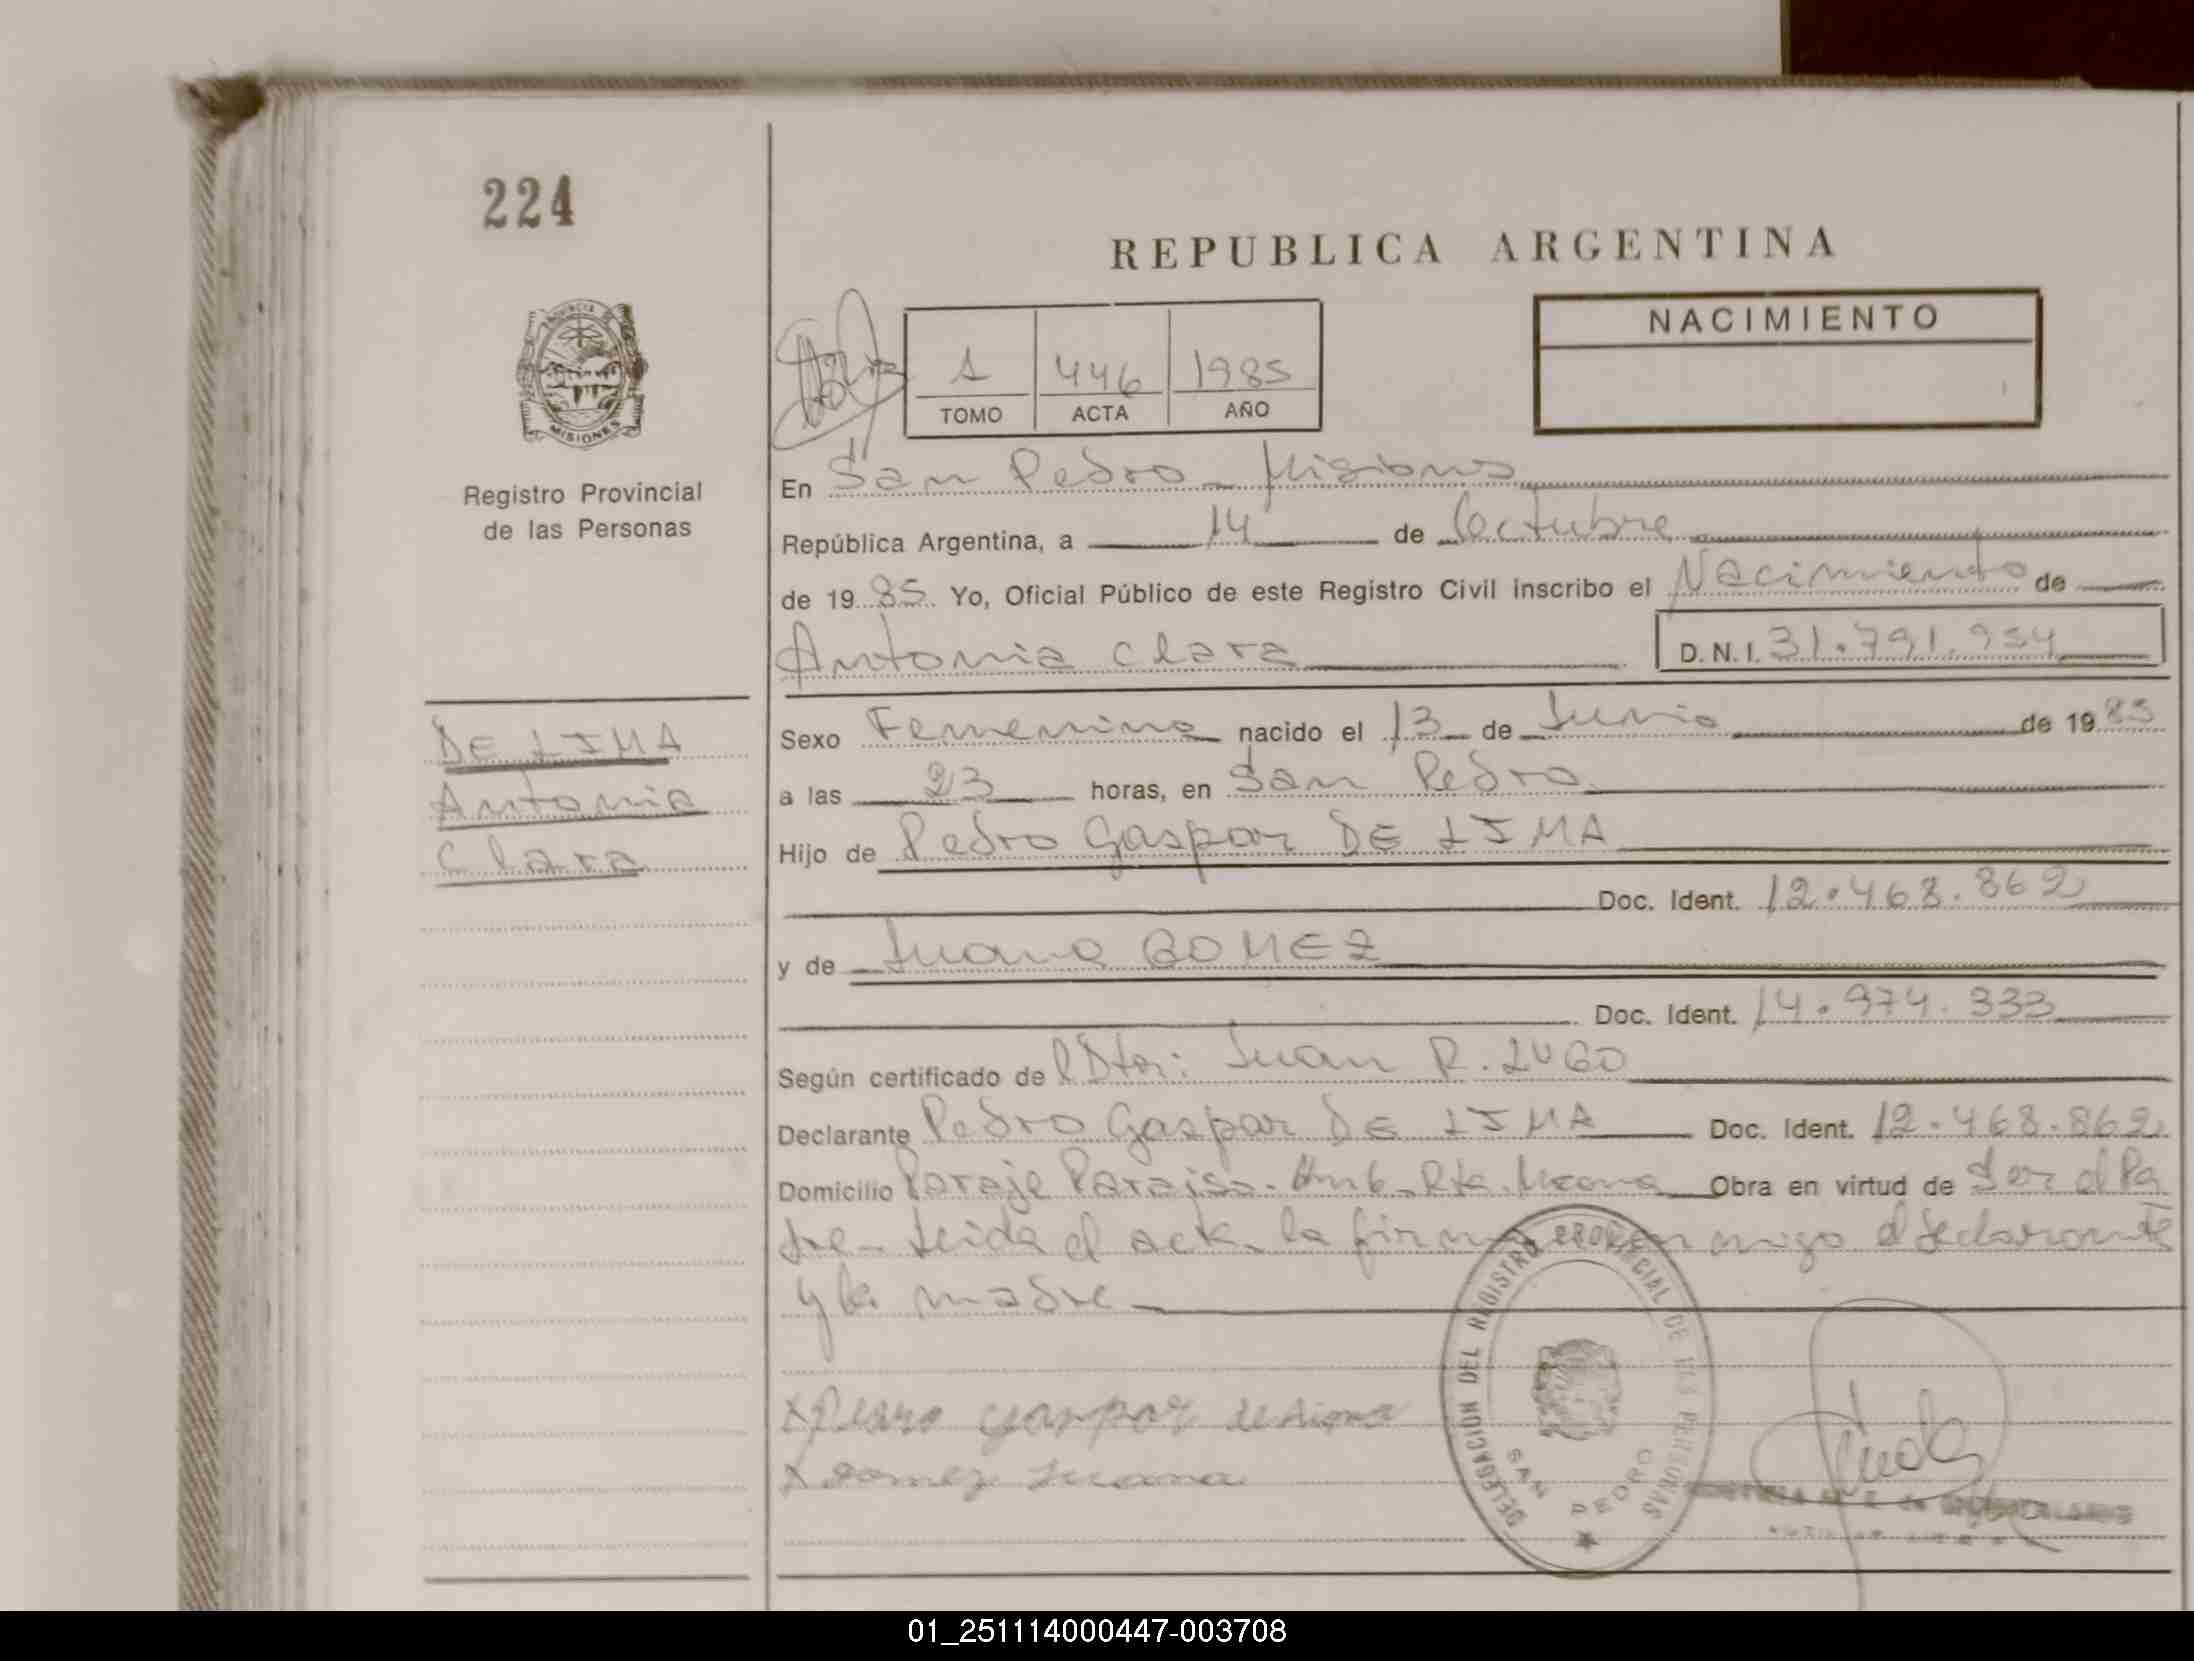 224
REPUBLICA ARGENTINA
PROVINCIA DE
MISIONES
Registro Provincial
de las Personas
1 446 1985
TOMO ACTA AÑO
NACIMIENTO
En San Pedro - Misiones
República Argentina, a 14 de Octubre
de 1985 Yo, Oficial Público de este Registro Civil inscribo el Nacimiento de
Antonia Clara D.N.I. 31.791.954
DE LIMA
Antonia
Clara
Sexo Femenino nacido el 13 de Junio de 1985
a las 23 horas, en San Pedro
Hijo de Pedro Gaspar DE LIMA
Doc. Ident. 12.468.862
y de Juana GOMEZ
Doc. Ident. 14.974.333
Según certificado del Dtor: Juan R. LUGO
Declarante Pedro Gaspar DE LIMA Doc. Ident. 12.468.862
Domicilio Paraje Paraiso. Obra en virtud de Ser el Pa
dre - Leida el acta la firman conmigo el declarante
y la madre
x Pedro gaspar de Lima
x Gomez Juana
DELEGACION DEL REGISTRO PROVINCIAL DE LAS PERSONAS
SAN PEDRO
01_251114000447-003708